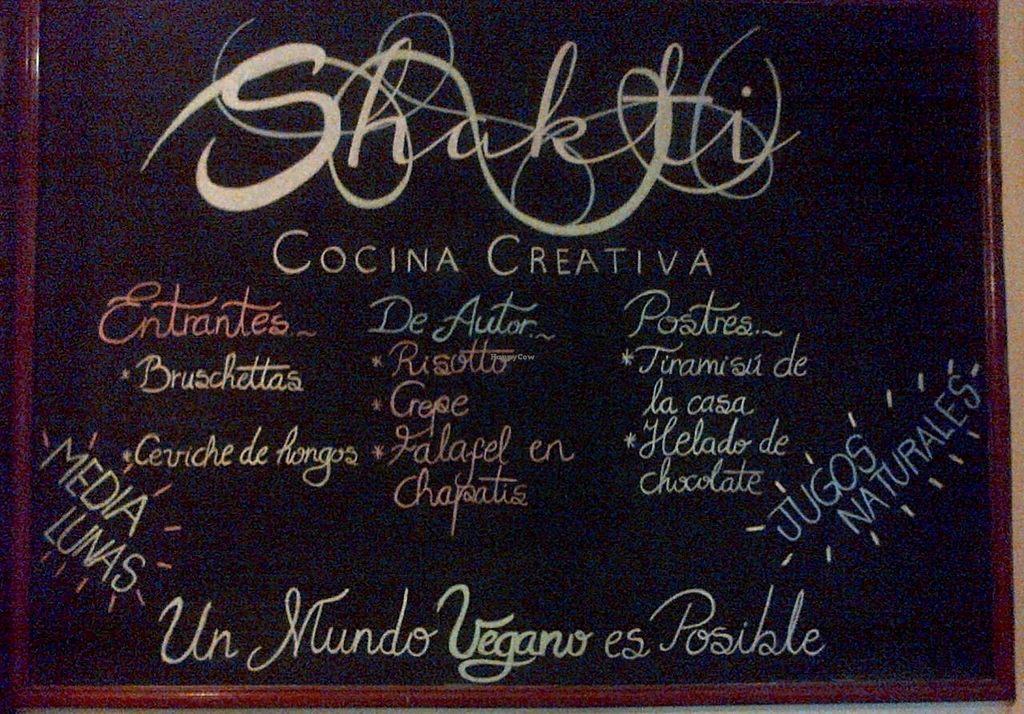 Shakti
COCINA CREATIVA
Entrantes...~
* Bruschettas
* Ceviche de hongos
De Autor...~
* Risotto
HappyCow
* Crepe
* Falafel en
chapatis
Postres...~
* Tiramisú de
la casa
* Helado de
chocolate
MEDIA
LUNAS
JUGOS
NATURALES
Un Mundo Vegano es Posible